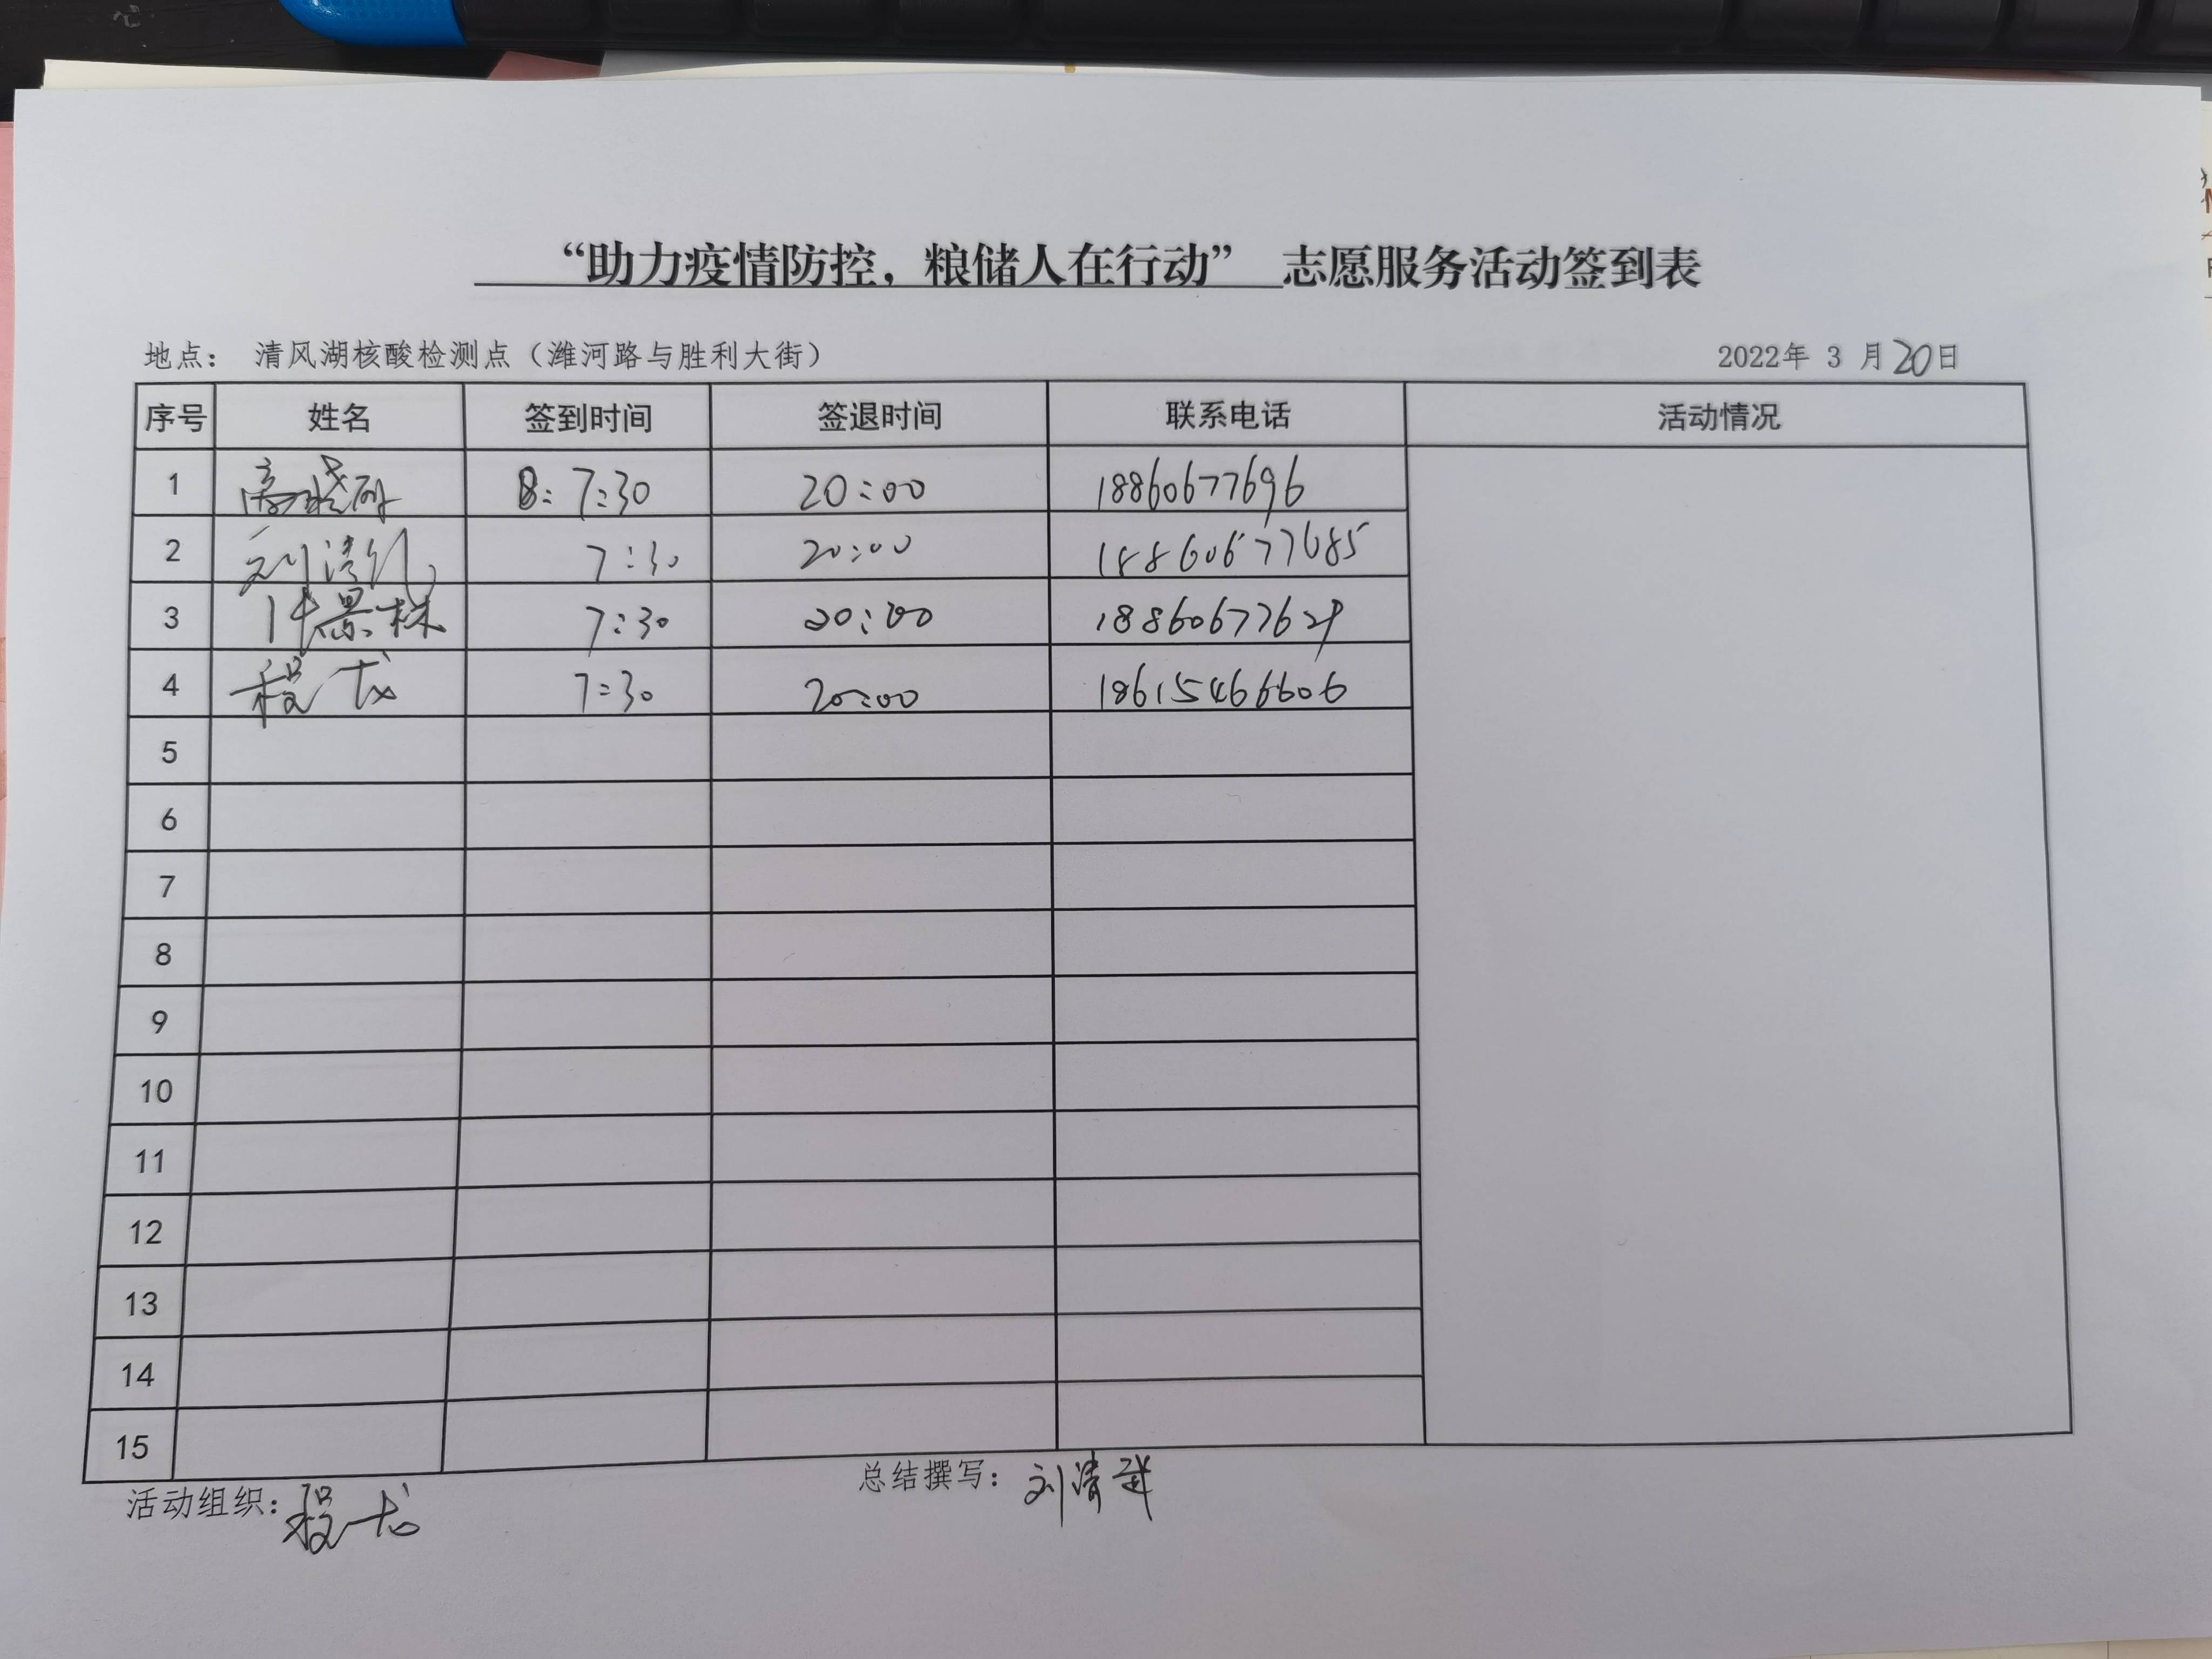 “助力疫情防控，粮储人在行动” 志愿服务活动签到表
地点： 清风湖核酸检测点（潍河路与胜利大街）
2022年 3 月20日
序号 姓名 签到时间 签退时间 联系电话 活动情况
1 7:30 20:00 18860677696
2 刘清 7:30 20:00 18860677685
3 景林 7:30 20:00 18860677629
4 程龙 7:30 20:00 18615466606
5
6
7
8
9
10
11
12
13
14
15
活动组织：程龙
总结撰写：刘清